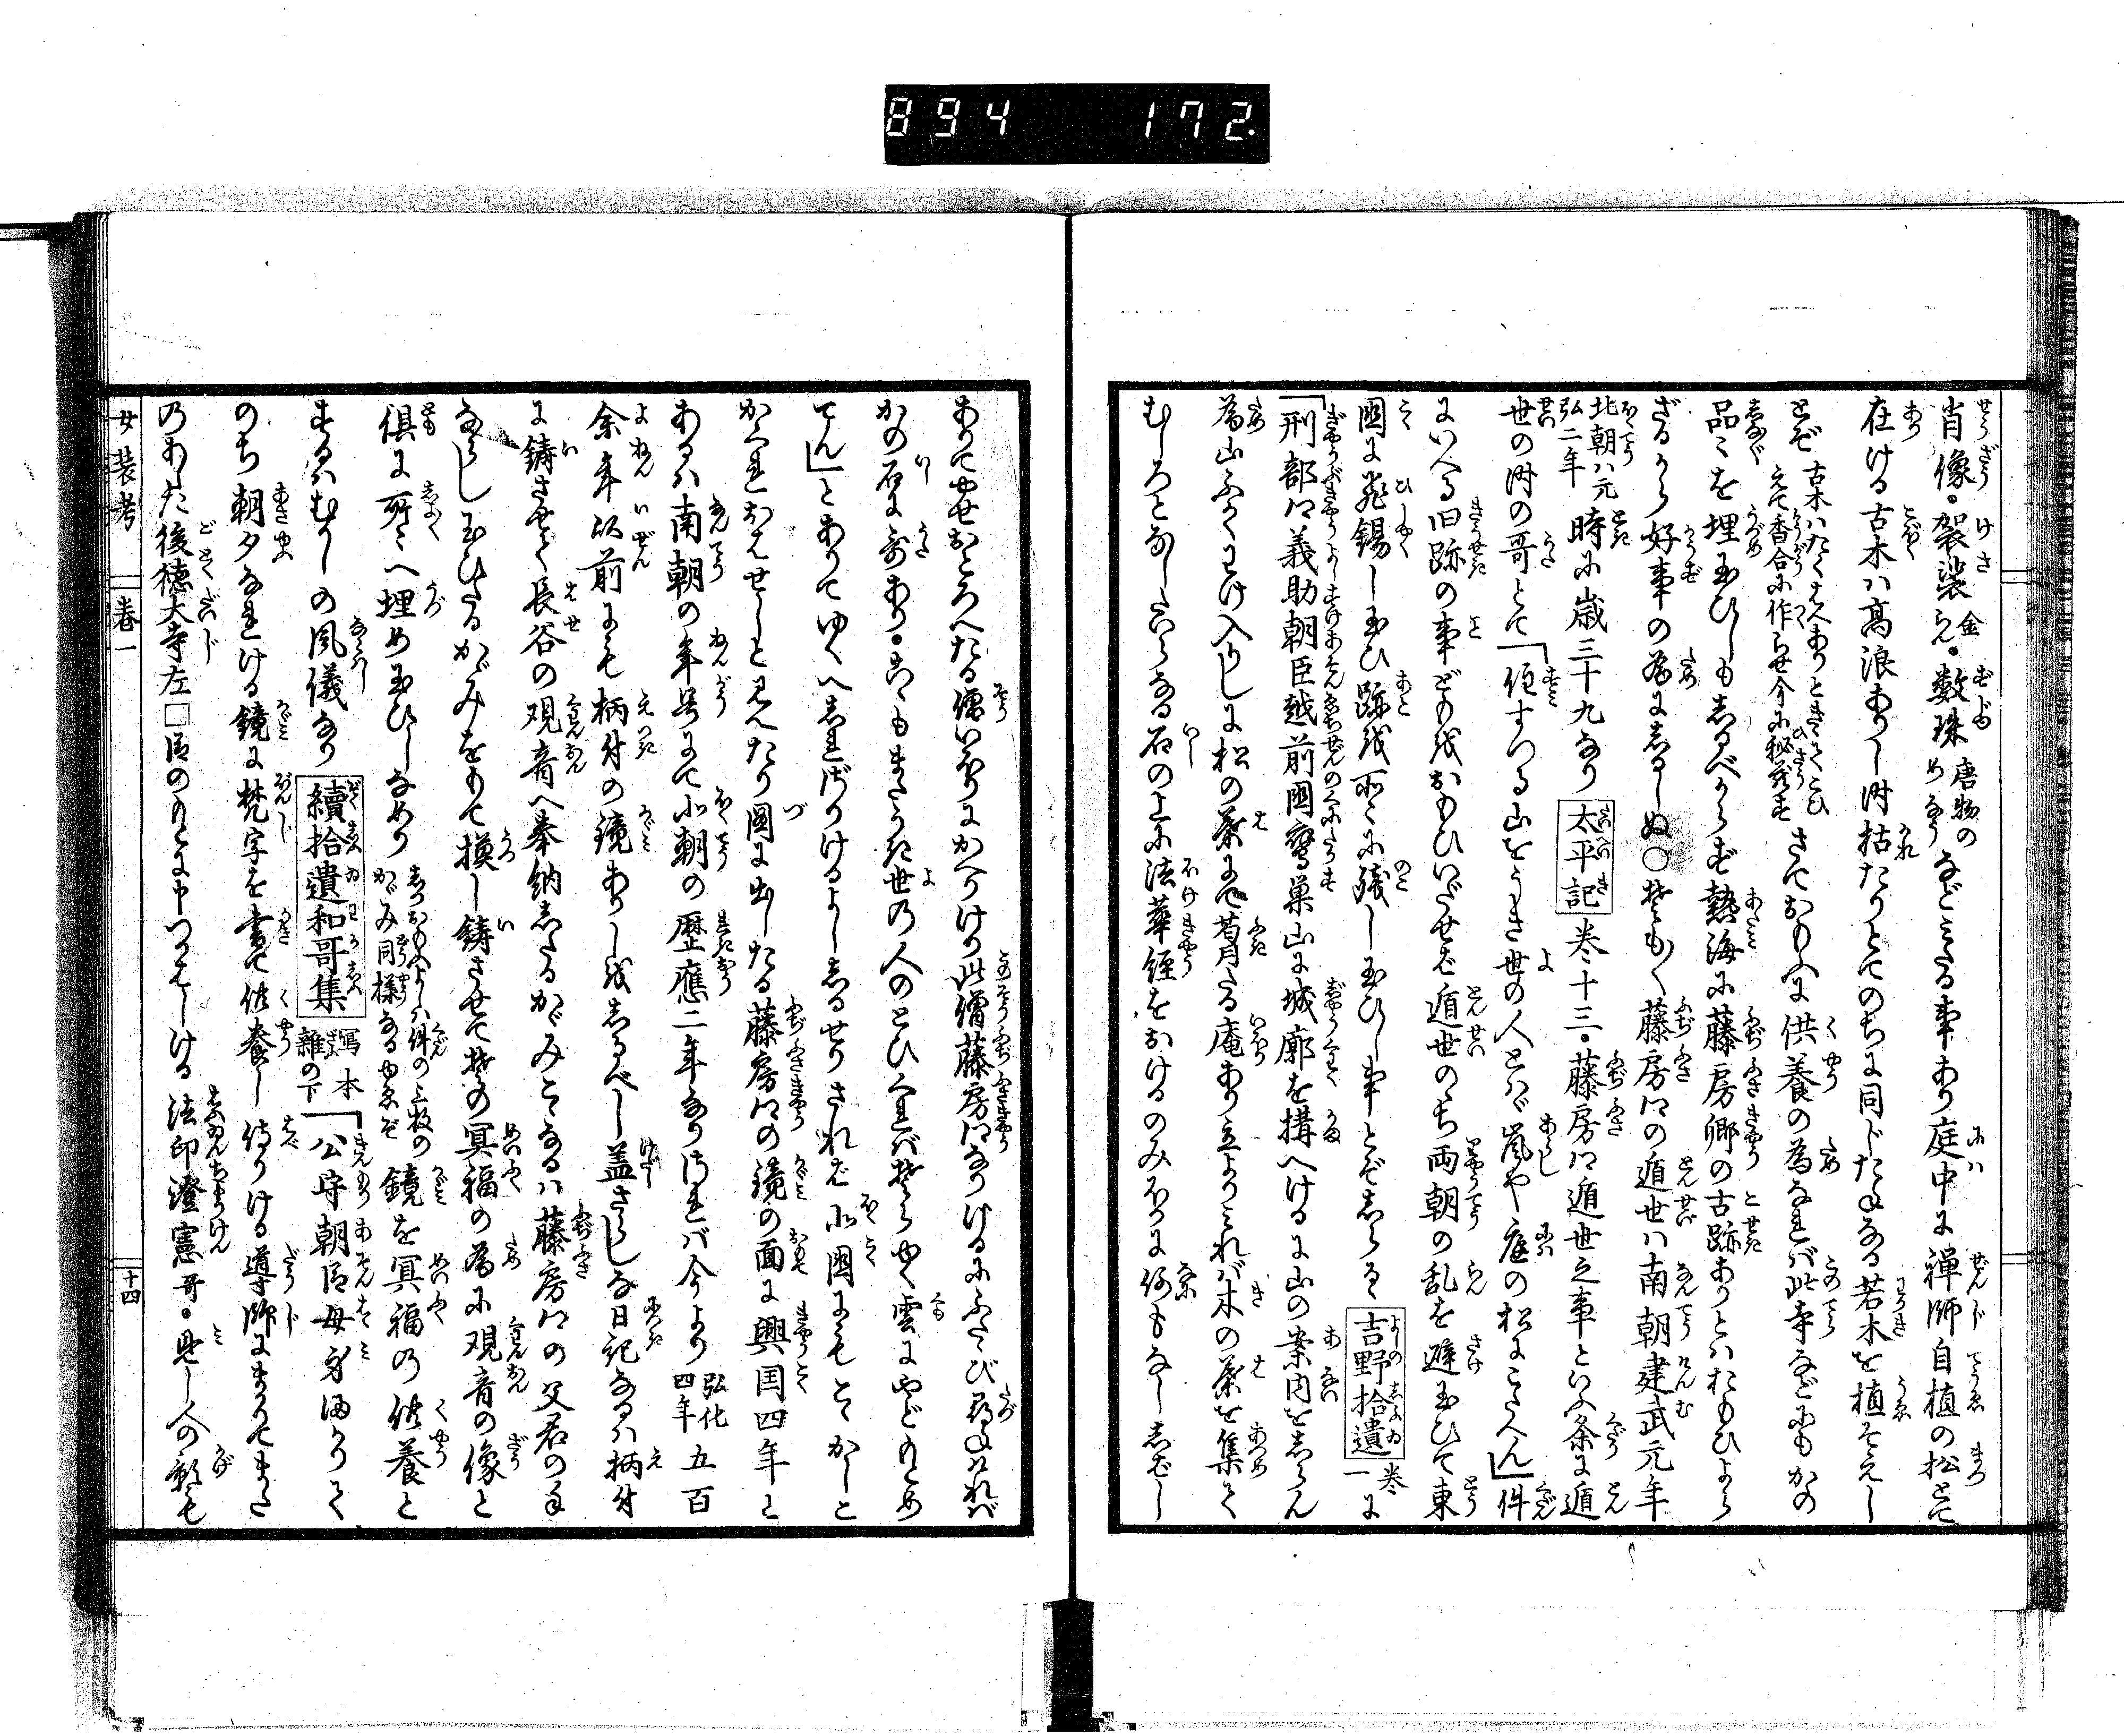 894 172.
肖像。袈裟 金 らん。数珠 唐物の めなり などみたる事あり庭中に禅師自植の松とて
在ける古木ハ高浪ありし時枯たりとてのちに同じたねなる若木を植そえし
とぞ 古木ハたくはへありときゝてこひ えて香合に作らせ今に秘蔵す さておもふに供養の為なれバ此寺などにもかの
品ゝを埋玉ひしもしるべからず熱海に藤房卿の古跡ありとハおもひよら
ざるから好事の為にしるしぬ○そも〳〵藤房卿の遁世ハ南朝建武元年
北朝ハ元 弘二年 時に歳三十九なり 太平記 巻十三。藤房卿遁世之事といふ条に遁
世の時の哥とて「住すつる山をうき世の人とハゞ嵐や庭の松にこたへん」件
にいへる旧跡の事どもおもひいだせば遁世のち両朝の乱を避玉ひて東
国に飛錫し玉ひ跡を所々に残し玉ひし事とぞしらる 吉野拾遺 巻一 に
「刑部卿義助朝臣越前国鷹巣山に城廓を搆へけるに山の案内をしらん
為山ふかくわけ入りしに松の葉にて葺たる庵あり立よりみれバ木の葉を集て
むしろとなしたひらなる石の上に法華経をおけるのみほかに何もなししばし
ありてやせおとろへたる僧いほりにかへりけり此僧藤房卿なりけるにふたゝび尋ねけれバ
かの石に哥あり。こゝもまたうき世の人のとひくれバそらゆく雲にやどもとめ
てん」とありてゆくへしれざりけるよししるせりされば北国にもとゞかしと
かくれおはせしと見えたり図に出したる藤房卿の鏡の面に興国四年と
あるハ南朝の年号にて北朝の歴應二年なりされバ今より 弘化 四年 五百
余年以前にも柄付の鏡ありしをしるべし盖さらしな日記なるハ柄付
に鋳させて長谷の観音へ奉納したるかゞみこゝなるハ藤房卿の父君の手
ならし玉ひたるかゞみをもて摸し鋳させてその冥福の為に観音の像と
倶に所ゝへ埋め玉ひしなめり しかおもふよしハ件の三枚の かゞみ同様なるゆゑぞ 鏡を冥福の供養と
するハむかしの風儀なり 續拾遺和哥集 写本 雑の下 「公守朝臣母身まかりて
のち朝夕なれける鏡に梵字を書て供養し侍りける導師にまかりてまた
のあした後徳大寺左□臣のもとに申つかはしける 法印澄憲哥。見し人の影も
女装考 巻一 十四